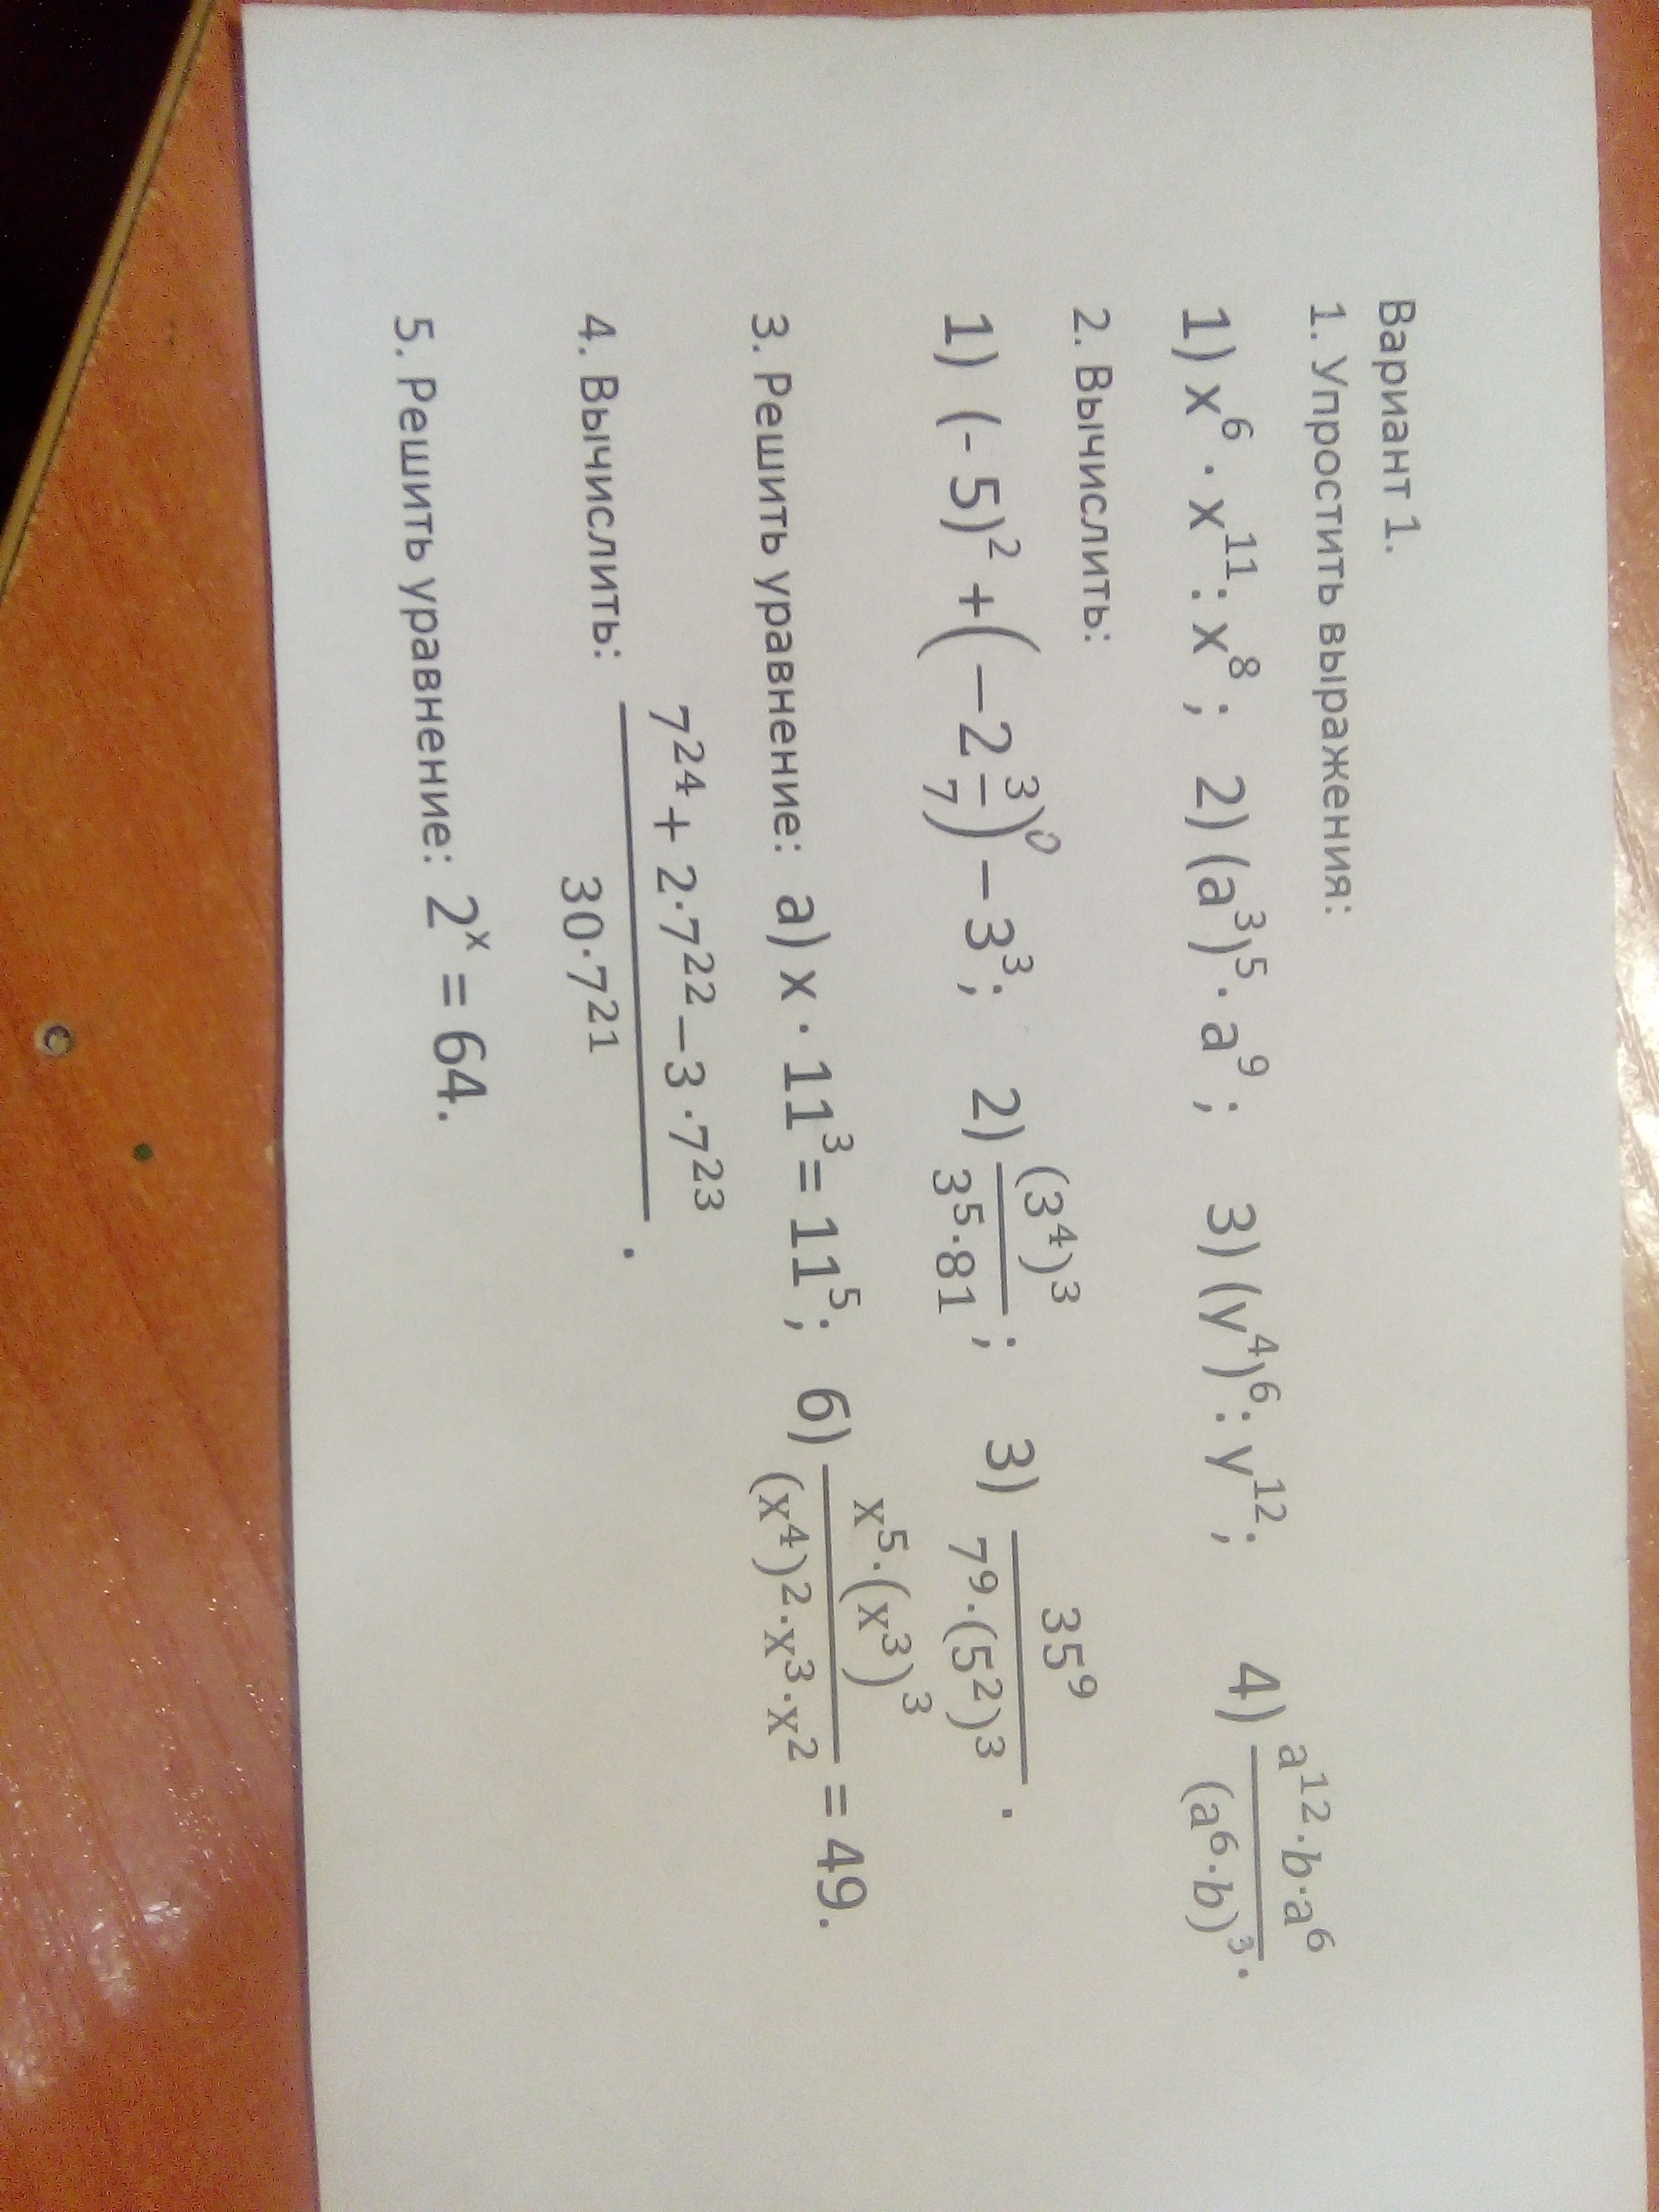 Вариант 1.
1. Упростить выражения:
1) x⁶ · x¹¹ : x⁸ ; 2) (a³)⁵ · a⁹ ; 3) (y⁴)⁶ : y¹² ; 4) \frac{a¹²·b·a⁶}{(a⁶·b)³}.
2. Вычислить:
1) (- 5)² + (−2\frac{3}{7})⁰ − 3³; 2) \frac{(3⁴)³}{3⁵·81} ; 3) \frac{35⁹}{7⁹·(5²)³} .
3. Решить уравнение: а) x · 11³ = 11⁵ ; б) \frac{x⁵·(x³)³}{(x⁴)²·x³·x²} = 49.
4. Вычислить: \frac{7²⁴+ 2·7²²−3 ·7²³}{30·7²¹} .
5. Решить уравнение: 2ˣ = 64.